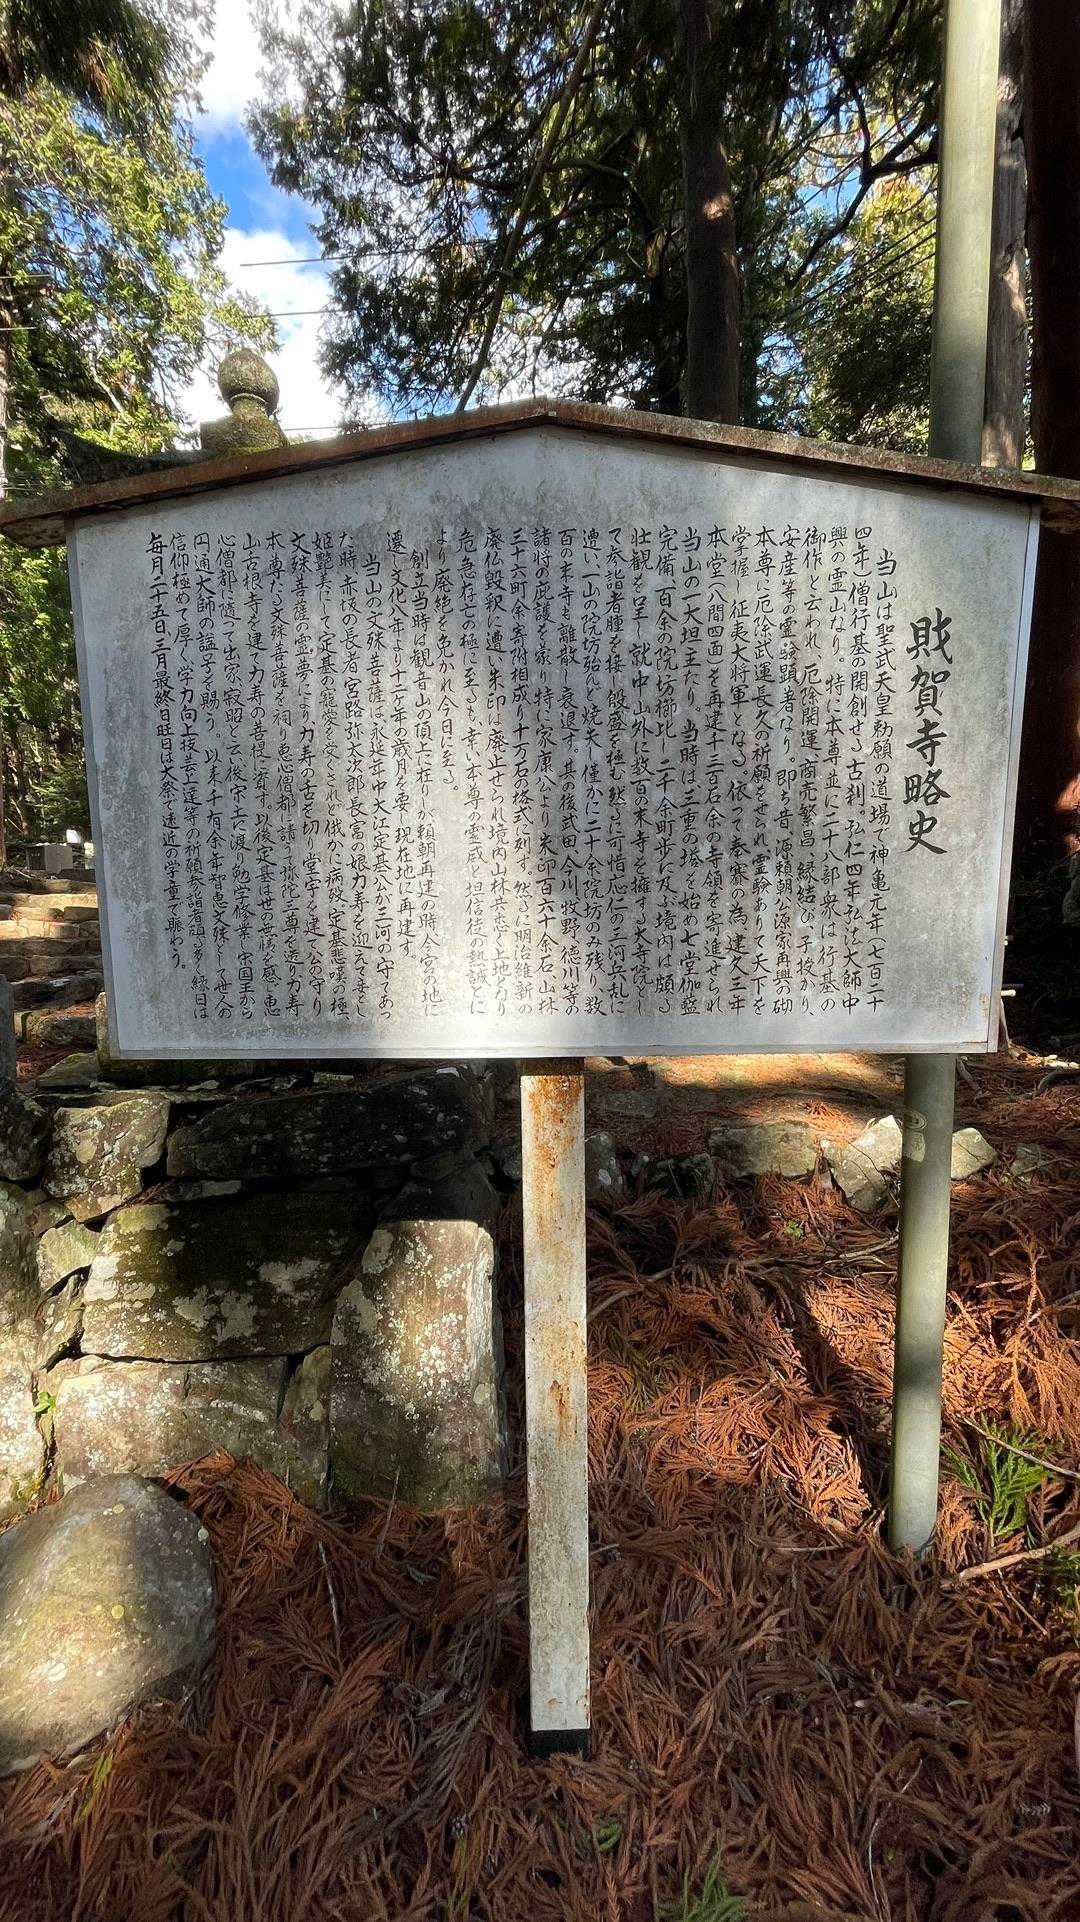 財賀寺略史
当山は聖武天皇勅願の道場で神亀元年(七百二十
四年)僧行基の開創せる古刹。弘仁四年弘法大師中
興の霊山なり。特に本尊並に二十八部衆は行基の
御作と云われ、厄除開運、商売繁昌、縁結び、子授かり、
安産等の霊験顕者なり。即ち昔、源頼朝公源家再興の砌
本尊に厄除武運長久の祈願をせられ霊験ありて天下を
掌握し征夷大将軍となる、依って奉賽の為、建久三年
本堂(八間四面)を再建千三百石余の寺領を寄進せられ
当山の一大坦主たり。当時は三重の塔を始め七堂伽藍
完備、百余の院坊櫛比し二千余町歩に及ぶ境内は頗る
壮観を呈し就中山外に数百の末寺を擁する大寺院とし
て参詣者腫を接し殷盛を極む然るに可惜応仁の三河兵乱に
遭い、一山の院坊殆んど焼失し僅かに二十余院坊のみ残り、数
百の末寺も離散し衰退す。其の後武田、今川、牧野、徳川等の
諸将の庇護を蒙り特に家康公より朱印百六十余石、山林
三十六町余寄附相成り十万石の格式に列す。然るに明治維新の
廃仏毀釈に遭い朱印は廃止せられ境内山林共悉く上地となり
危急存亡の極に至るも、幸い本尊の霊威と坦信徒の熱誠とに
より廃絶を免かれ今日に至る。
創立当時は観音山の頂上に在りしが頼朝再建の時、今宮の地に
遷し文化八年より十二ヶ年の歳月を要し現在地に再建す。
当山の文殊菩薩は永延年中大江定基公が三河の守であっ
た時、赤坂の長者、宮路弥太次郎長富の娘力寿を迎えて妾とし
姫艶美にして定基の寵愛を受くされど俄かに病歿、定基悲嘆の極、
文殊菩薩の霊夢により力寿の舌を切り堂宇を建て公の守り
本尊たる文殊菩薩を祠り恵心僧都に請って弥陀三尊を造り力寿
山古根寺を建て力寿の菩提に資す。以後定基は世の無勝を感じ恵
心僧都に随って出家、寂昭と云い後宋土に渡り勉学修業し宋国王から
円通大師の諡号を賜う。以来千有余年智恵文殊として世人の
信仰極めて厚く、学力向上技芸上達等の祈願参詣者頗る多く縁日は
毎月二十五日、三月最終日旺日は大祭で遠近の学童で賑わう。